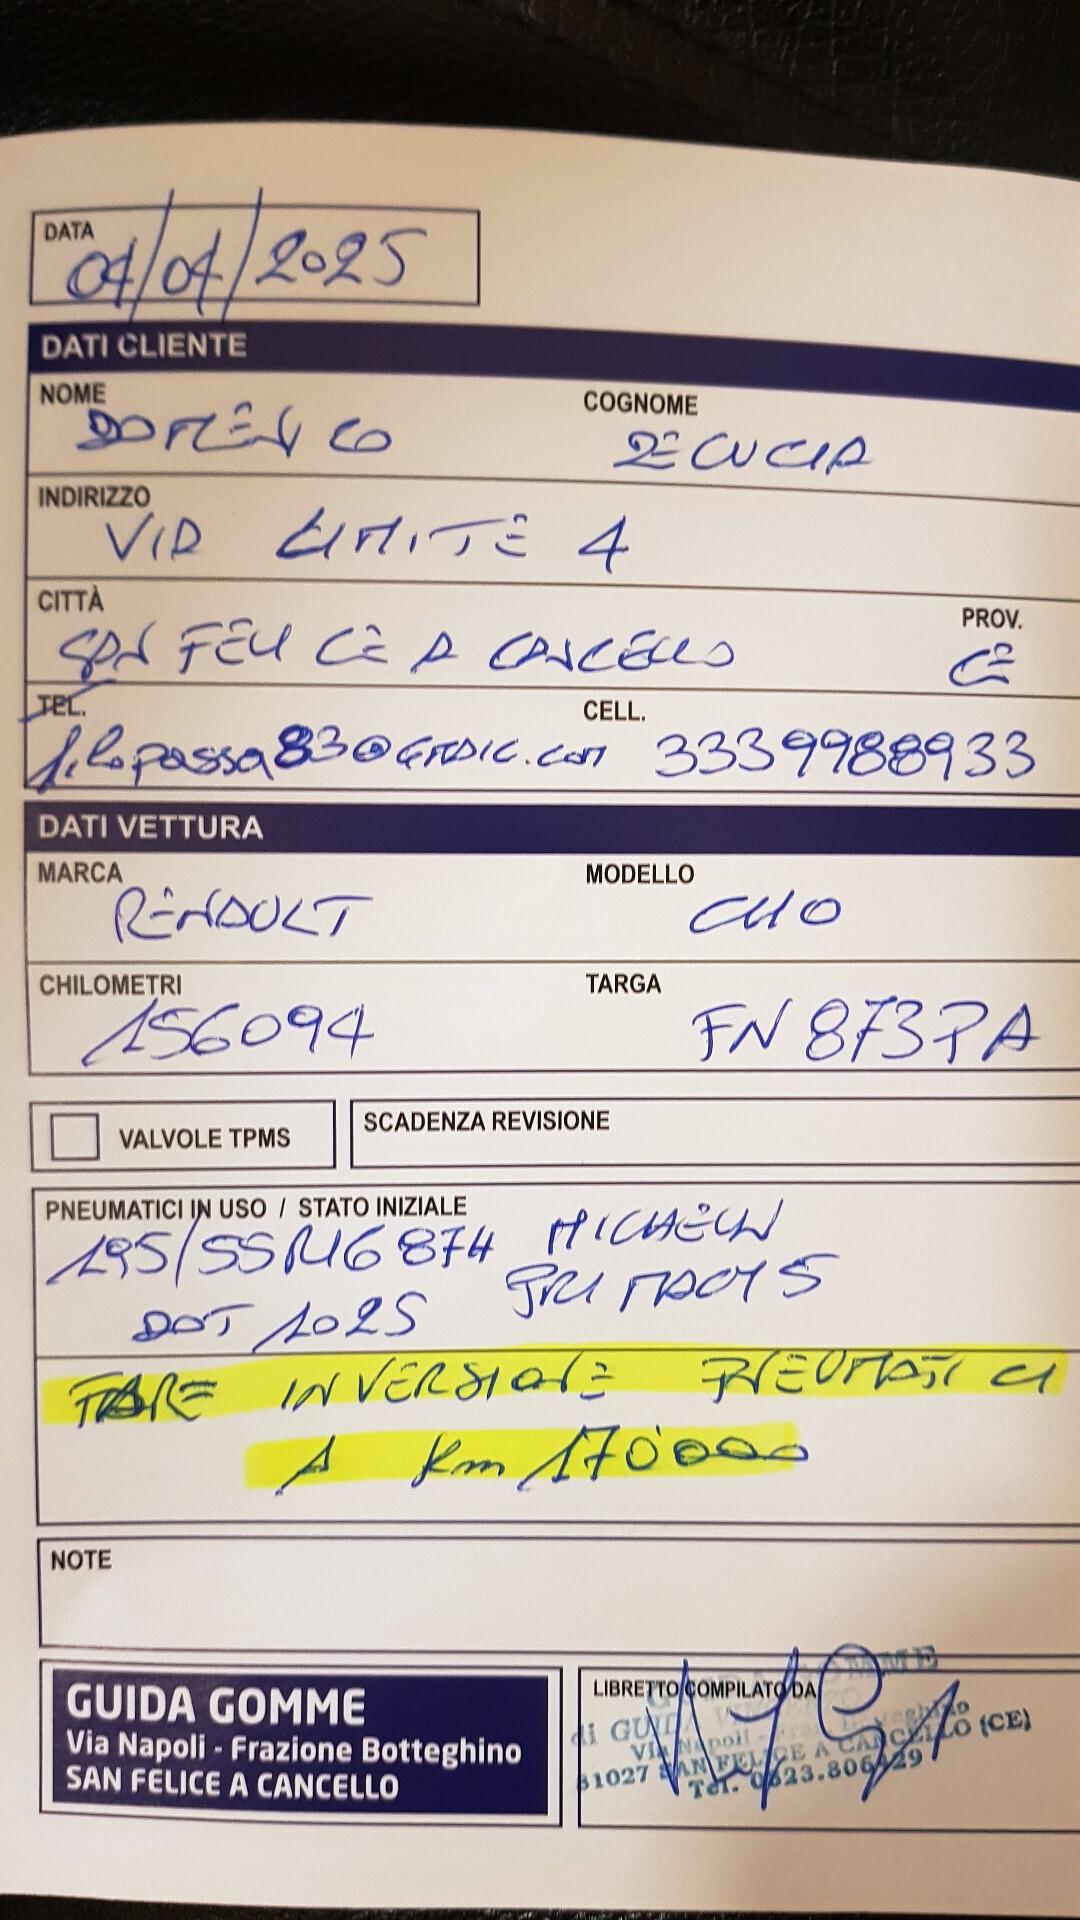 DATA
04/04/2025
DATI CLIENTE
NOME COGNOME
DOMENICO ZECUCIA
INDIRIZZO
VIA LIMITE 4
CITTÀ PROV.
SAN FELICE A CANCELLO CE
TEL. CELL.
filopassa83@GMAIL.com 3339988933
DATI VETTURA
MARCA MODELLO
RENAULT CLIO
CHILOMETRI TARGA
156094 FN873PA
VALVOLE TPMS SCADENZA REVISIONE
PNEUMATICI IN USO / STATO INIZIALE
195/55R16 87H MICHELIN
PRIMACY 5
DOT 1025
FARE INVERSIONE PNEUMATICI
A Km 170'000
NOTE
GUIDA GOMME
Via Napoli - Frazione Botteghino
SAN FELICE A CANCELLO
LIBRETTO COMPILATO DA
GOMME
di GUIDA
Via Napoli - Fraz. Botteghino
81027 SAN FELICE A CANCELLO (CE)
Tel. 0823.806